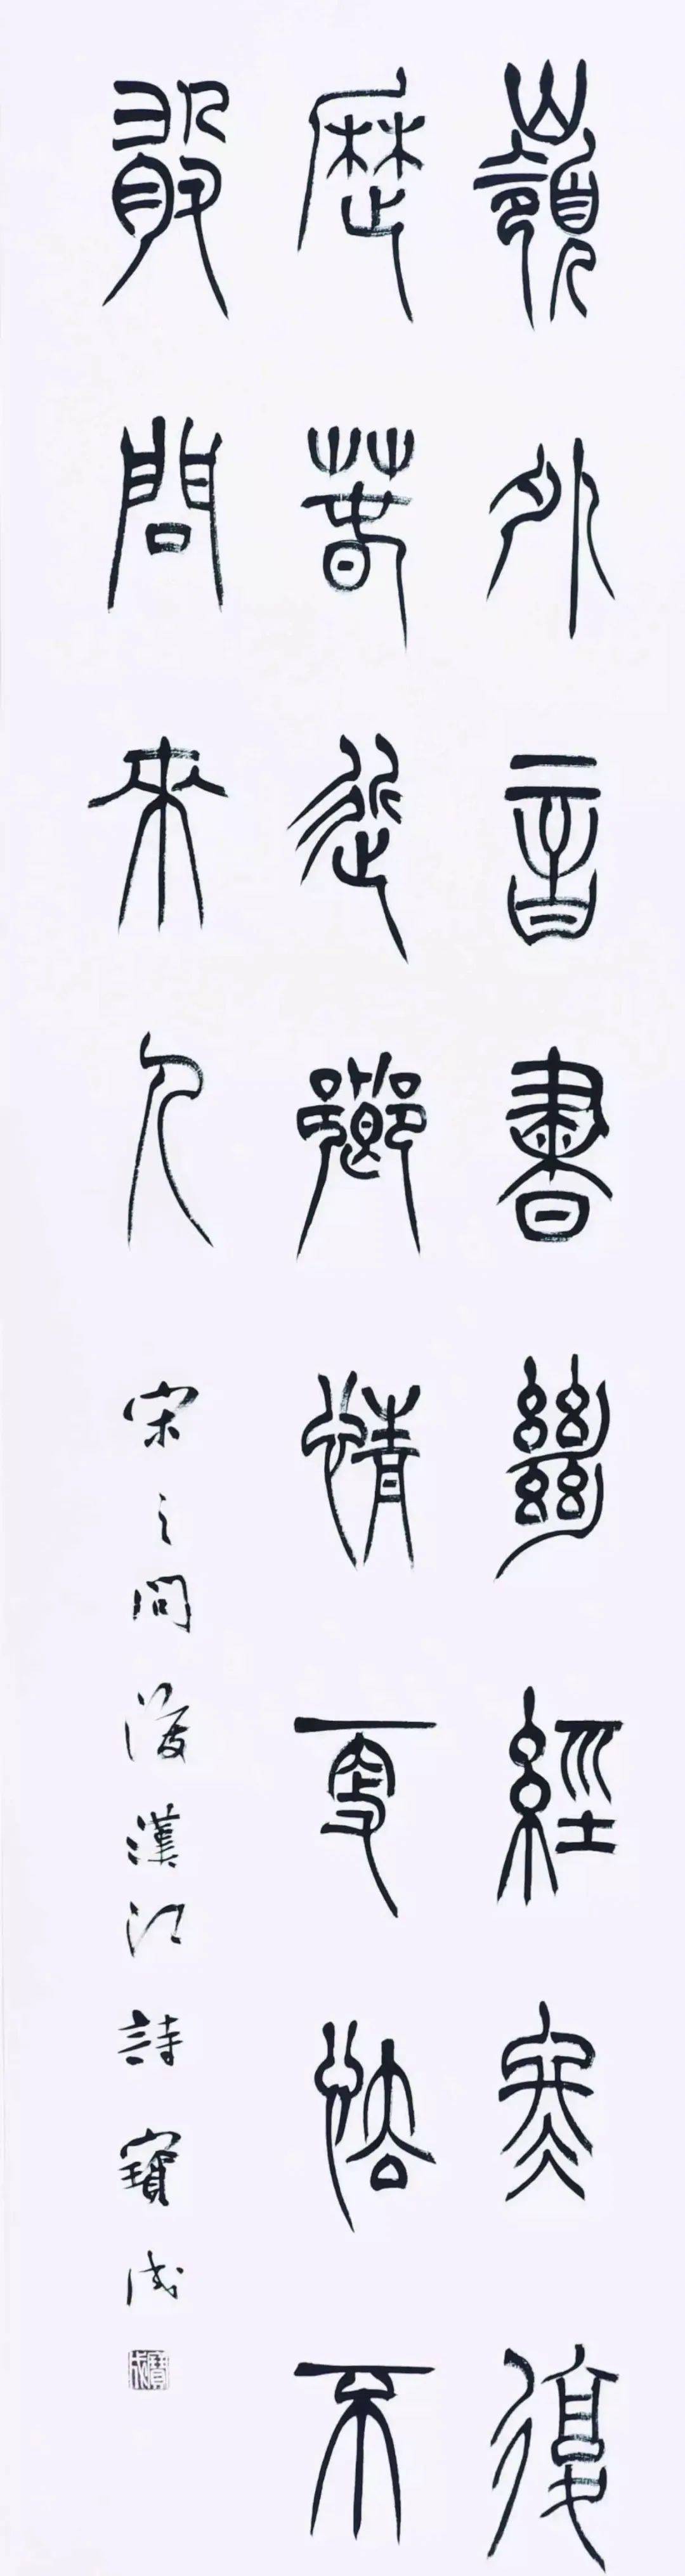 嶺外音書絕經冬復
歷春近鄉情更怯不
敢問來人 宋之問渡漢江詩 寶成
寶成